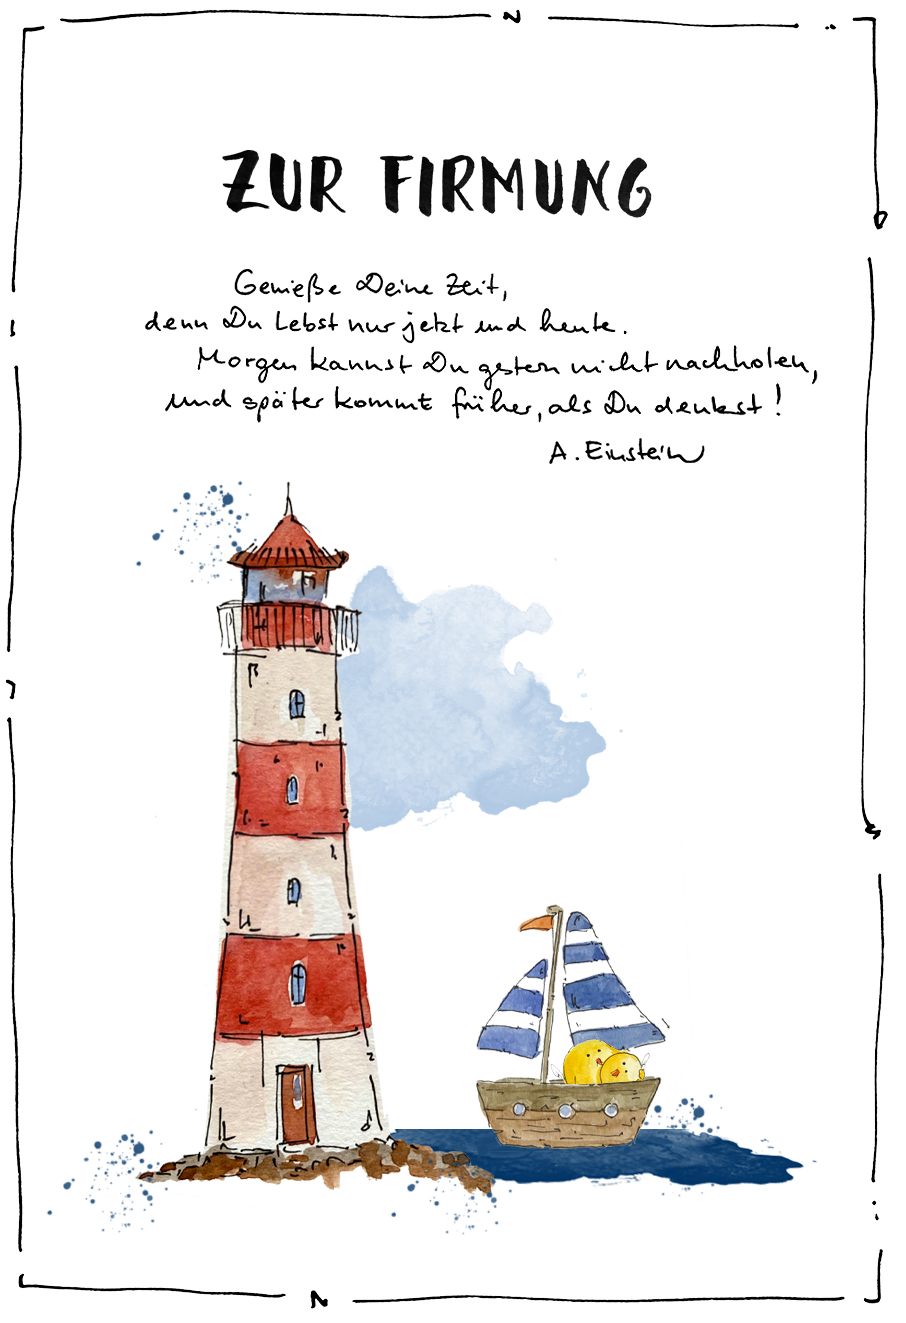 ZUR FIRMUNG
Genieße Deine Zeit,
denn Du Lebst nur jetzt und heute.
Morgen kannst Du gestern nicht nachholen,
und später kommt früher, als Du denkst!
A. Einstein